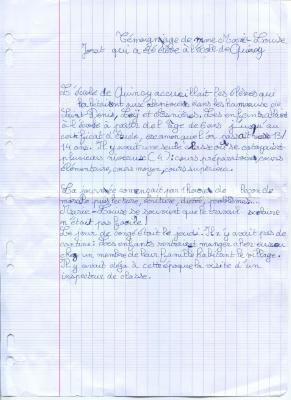 Témoignage de mme Marie-Louise
Jonat qui a été élève à l'école de Quincy
L'école de Quincy accueillait les élèves qui
habitaient aux alentours dans les hameaux de
Saint-Denis, Les enfants allaient
à l'école à partir de l'âge de 6 ans jusqu'au
certificat d'étude, examen que l'on passait vers 13/
14 ans. Il y avait une seule classe où se cotoyaient
plusieurs niveaux (4): cours préparatoire, cours
élémentaire, cours moyen, cours supérieur.
La journée commençait par 1 heure de leçon de
morale puis lecture, écriture, dictée, problèmes...
Marie-Louise se souvient que le travail scolaire
n'était pas facile!
Le jour de congé était le jeudi. Il n'y avait pas de
cantine: les enfants rentraient manger chez eux ou
chez un membre de leur famille habitant le village.
Il y avait déjà à cette époque la visite d'un
inspecteur de classe.